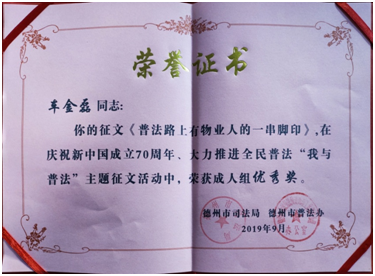 荣誉证书
车金磊同志：
你的征文《普法路上有物业人的一串脚印》,在
庆祝新中国成立70周年、大力推进全民普法“我与
普法”主题征文活动中，荣获成人组优秀奖。
德州市司法局 德州市普法办
2019年9月